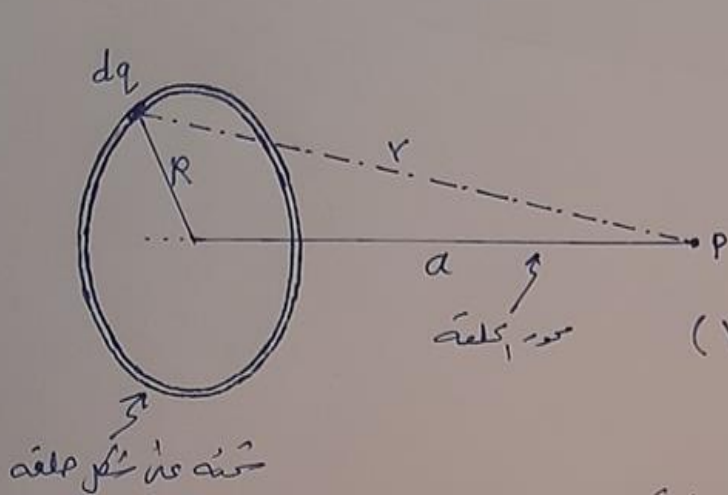 dq
R
r
a
P
محور الحلقة
(
شحنة على شكل حلقة